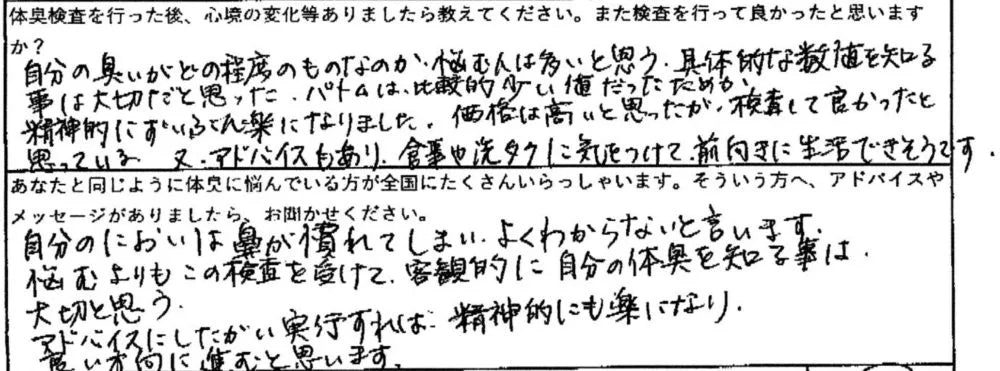 体臭検査を行った後、心境の変化等ありましたら教えてください。また検査を行って良かったと思います
か？
自分の臭いがどの程度のものなのか、悩む人は多いと思う。具体的な数値を知る
事は大切だと思った。パトムは、比較的少い値だったためか
精神的にずいぶん楽になりました。価格は高いと思ったが、検査して良かったと
思っている 又、アドバイスもあり、食事や洗タクに気をつけて、前向きに生活できそうです.
あなたと同じように体臭に悩んでいる方が全国にたくさんいらっしゃいます。そういう方へ、アドバイスや
メッセージがありましたら、お聞かせください。
自分のにおいは鼻が慣れてしまい、よくわからないと言います.
悩むよりもこの検査を受けて、客観的に自分の体臭を知る事は、
大切と思う.
アドバイスにしたがい実行すれば、精神的にも楽になり、
良い方向に進むと思います.